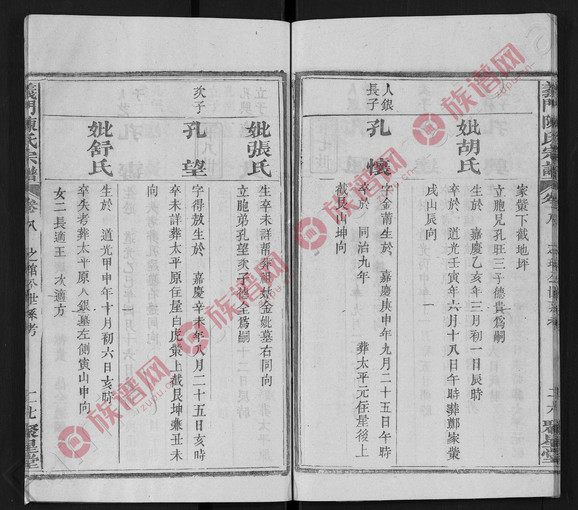 義門陳氏宗譜
卷八
聚星堂
家簊下截地坪
立胞兄孔班三子德貴爲嗣
妣胡氏
生於 嘉慶乙亥年三月初一日辰時
卒於 道光壬寅年六月十八日午時葬鄭家叢
戌山辰向
人銀長子
孔懷
字金莆生於 嘉慶庚申年九月二十五日午時
卒於 同治九年 葬太平元住屋後上
截艮山坤向
妣張氏
生卒未詳幫葬祖姑金妣墓右同向
立胞弟孔望次子傳全爲嗣
次子
孔望
字得敖生於 嘉慶辛未年八月二十五日亥時
卒未詳葬太平原住屋白虎叢上截艮坤兼丑未
向
妣舒氏
生於 道光甲申年十月初六日亥時
卒失考葬太平原人銀墓左側寅山申向
女二長適王 次適方
義門陳氏宗譜
卷八
二十七
聚星堂
族谱网
zupu.cn
族谱网
zupu.cn
族谱网
zupu.cn